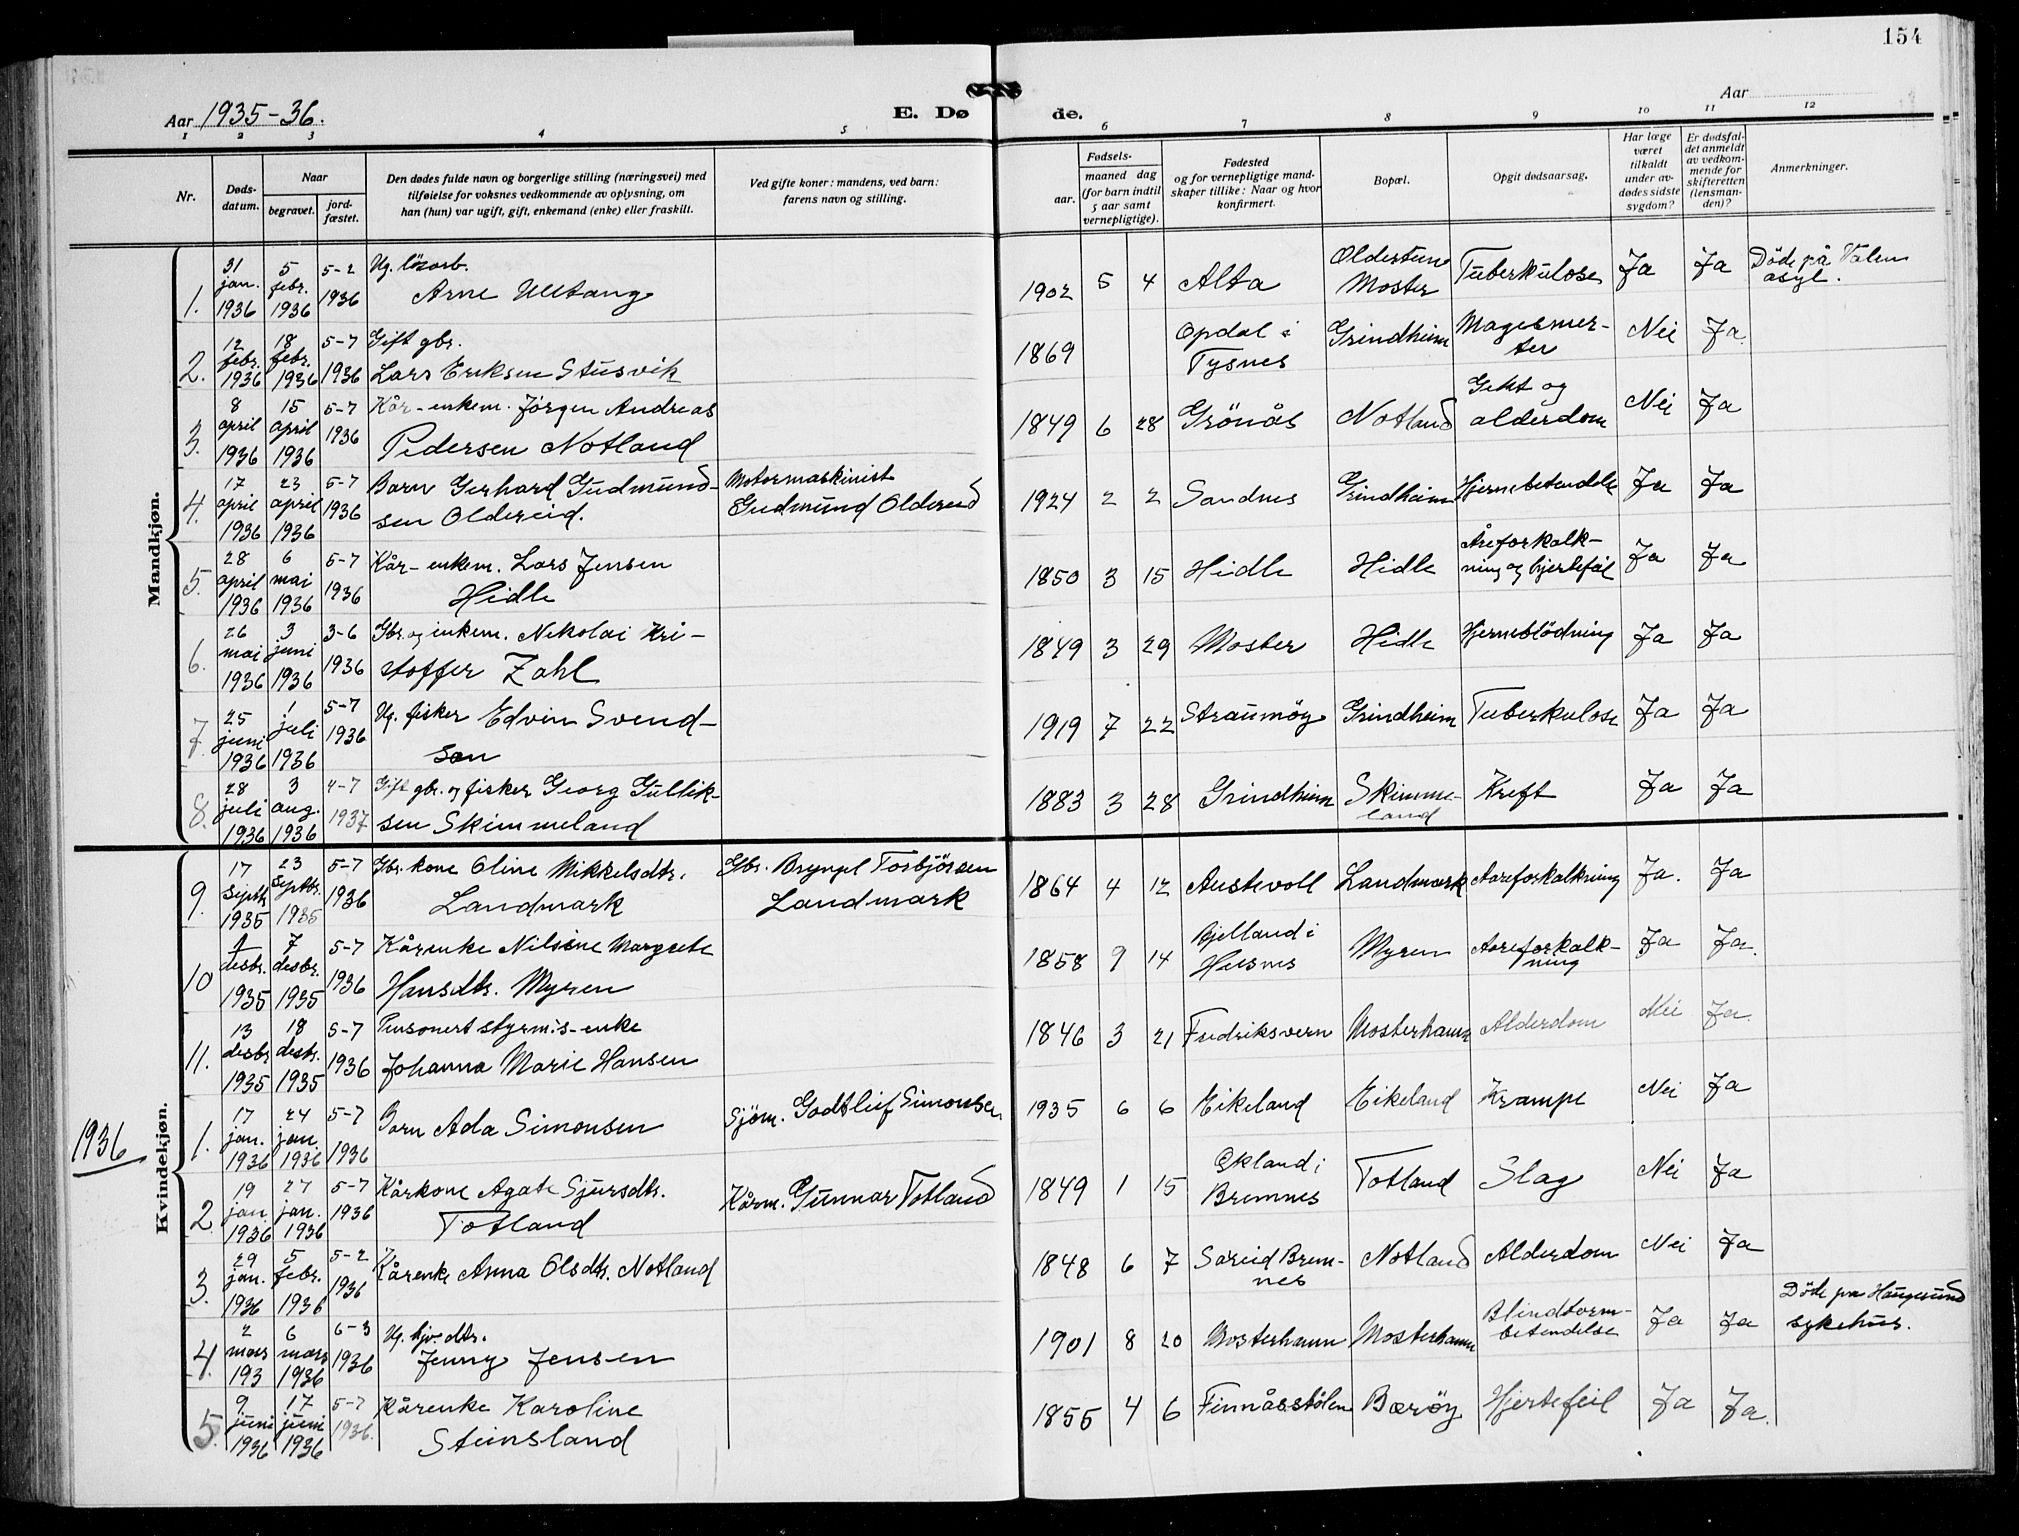 154
Aar 1935-36.
E. Dø
de.
Aar
1 2 3 4 5 6 7 8 9 10 11 12
Nr.
Døds-
datum.
Naar
begravet.
jord-
fæstet.
Den dødes fulde navn og borgerlige stilling (næringsvei) med
tilføielse for voksnes vedkommende av oplysning, om
han (hun) var ugift, gift, enkemand (enke) eller fraskilt.
Ved gifte koner: mandens, ved barn:
farens navn og stilling.
Fødsels-
aar.
maaned dag
(for barn indtil
5 aar samt
vernepligtige).
Fødested
og for vernepligtige mand-
skaper tillike: Naar og hvor
konfirmert.
Bopæl.
Opgit dødsaarsag.
Har læge
været
tilkaldt
under av-
dødes sidste
sygdom?
Er dødsfal-
det anmeldt
av vedkom-
mende for
skifteretten
(lensman-
den)?
Anmerkninger.
Mandkjøn.
1. 31 jan. 1936 5 febr. 1936 5-2 1936
Ug. løsarb.
Arne Ulltang
1902 5 4 Alta Oldertun Moster Tuberkulose Ja Ja Døde på Valen asyl.
2. 12 febr. 1936 18 febr. 1936 5-7 1936
Gift gbr.
Lars Eriksen Stusvik
1869 Opdal i Tysnes Grindheim Magesmer-
ter Nei Ja.
3. 8 april 1936 15 april 1936 5-7 1936
Kår-enkem. Jørgen Andreas
Pedersen Notland
1849 6 28 Grönås Notland Gikt og
alderdom Nei Ja
4. 17 april 1936 23 april 1936 5-7 1936
Barn Gerhard Gudmund-
sen Oldereid.
Motormaskinist
Gudmund Oldereid
1924 2 2 Sandnes Grindheim Hjernebetendelse Ja Ja
5. 28 april 1936 6 mai 1936 5-7 1936
Kår-enkem. Lars Jensen
Hidle
1850 3 15 Hidle Hidle Åreforkalk-
ning og hjertefeil Ja Ja
6. 26 mai 1936 3 juni 1936 3-6 1936
Gbr. og enkem. Nikolai Kri-
stoffer Zahl
1849 3 29 Moster Hidle Hjerneblödning Ja Ja
7. 25 juni 1936 1 juli 1936 5-7 1936
Ug. fisker Edvin Svend-
sen
1919 7 22 Straumöy Grindheim Tuberkulose Ja Ja
8. 28 juli 1936 3 aug. 1936 4-7 1937
Gift gbr. og fisker Georg Gullik-
sen Skimmeland
1883 3 28 Grindheim Skimme-
land Kreft Ja Ja
1936
Kvindekjøn.
9. 17 septbr. 1935 23 septbr. 1935 5-7 1936
Gbr. kone Oline Mikkelsdtr.
Landmark
Gbr. Brynjel Torbjörsen
Landmark
1864 4 12 Austevoll Landmark Aareforkalkning Ja. Ja
10 1 desbr. 1935 7 desbr. 1935 5-7 1936
Kårenke Nilsine Margrete
Hansdtr. Myren
1858 9 14 Bjelland i
Husnes Myren Aareforkalk-
ning Ja Ja.
11. 13 desbr 1935 18 desbr. 1935 5-7 1936
Pensonert styrm:s-enke
Johanna Marie Hansen
1846 3 21 Fredriksvern Mosterhamn Alderdom Nei Ja.
1. 17 jan. 1936 24 jan 1936 5-7 1936
Barn Ada Simonsen
Sjöm. Godtlief Simonsen
1935 6 6 Eikeland Eikeland Krampe Nei Ja
2. 19 jan. 1936 27 jan. 1936 5-7 1936
Kårkone Agate Sjursdtr.
Totland
Kårm. Gunnar Totland
1849 1 15 Økland i
Bremnes Totland Slag Nei Ja
3. 29 jan. 1936 5 febr. 1936 5-2 1936
Kårenke Anna Olsdtr. Notland
1848 6 7 Söreid Brem-
nes Notland Alderdom Nei Ja
4. 2 mars 193 6 mars 1936 6-3 1936
Ug. hjv. dtr.
Jenny Jensen
1901 8 20 Mosterhamn Mosterhamn Blindtarm-
betendelse Ja Ja Døde på Haugesund
sykehus.
5. 9 juni 1936 17 juni 1936 5-7 1936.
Kårenke Karoline
Steinsland
1855 4 6 Finnåsstölen Bæröy Hjertefeil Ja Ja.